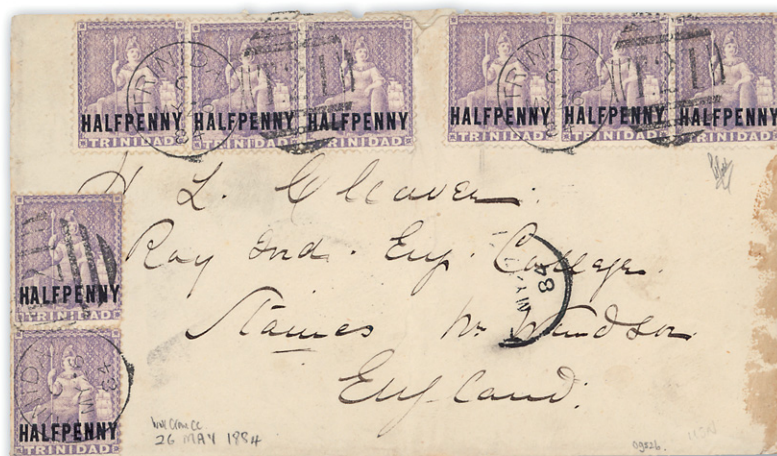 HALFPENNY HALFPENNY HALFPENNY HALFPENNY HALFPENNY HALFPENNY
TRINIDAD TRINIDAD TRINIDAD TRINIDAD TRINIDAD TRINIDAD
H L. Cleaver.
Roy Ind. Eng. College.
Staines Nr. Windsor
England.
HALFPENNY
TRINIDAD
HALFPENNY
TRINIDAD
MY
84
26 MAY 1884